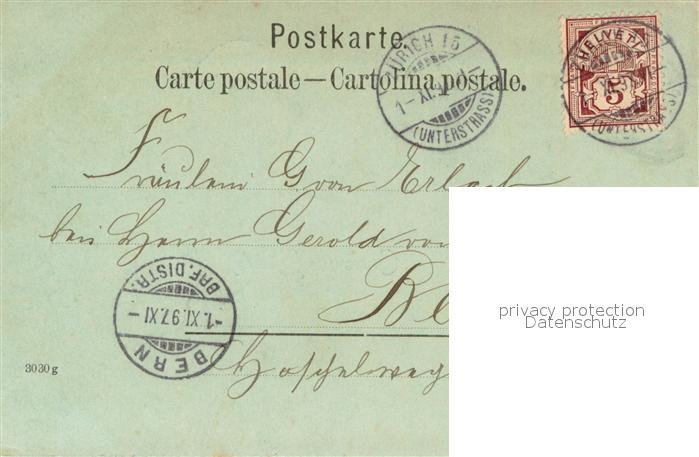 Postkarte.
Carte postale — Cartolina postale.
ZÜRICH 15
1-XI.97.
(UNTERSTRASS)
HELVETIA
5
XI.97.XI-1
(UNTERSTRASS)
Fräulein G von Erlach
bei Herrn Gerold von
Be
BRF. DISTR.
-1.XI.97.XI-
BERN
3030 g
privacy protection
Datenschutz